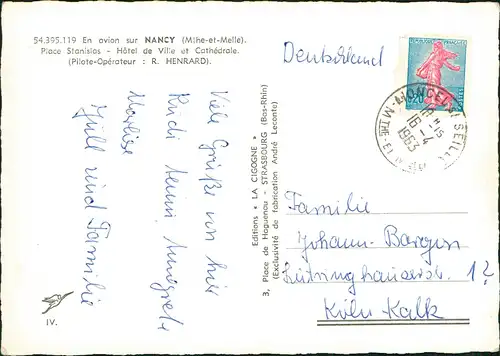 54.395.119 En avion sur NANCY (Mthe-et-Melle).
Place Stanislas - Hôtel de Ville et Cathédrale.
(Pilote-Opérateur : R. HENRARD).
Viele Grüße von hier
Rudi
Marlise
Jüll und Familie
IV.
Editions "LA CIGOGNE"
3, Place de Haguenau - STRASBOURG (Bas-Rhin)
(Exclusivité de fabrication André Leconte)
Deutschland
0,20
MONCEL S/ SEILLE
H 15
16-4
1963
Familie
Johann Bargon
1?
Köln-Kalk